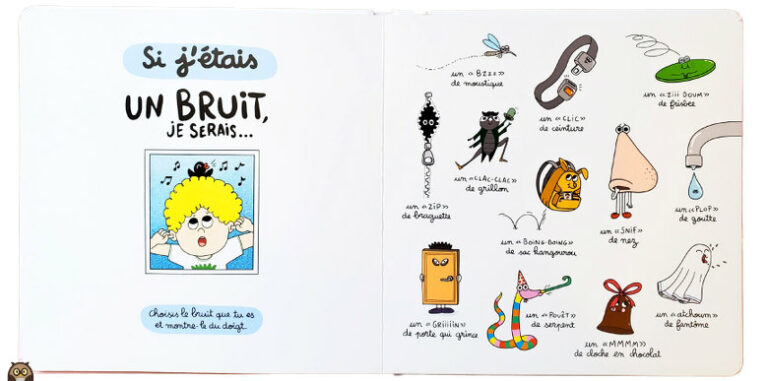 Si j'étais
UN BRUIT,
JE SERAIS...
Choisis le bruit que tu es
et montre-le du doigt.
un «BZZZ»
de moustique
un «CLIC»
de ceinture
un «ZIII DOUM»
de frisbee
un «ZIP»
de braguette
un «CLAC-CLAC»
de grillon
un «BOING-BOING»
de sac kangourou
un «SNIF»
de nez
un «PLOF»
de goutte
un «GRIIIIN»
de porte qui grince
un «POUÊT»
de serpent
un «MMMM»
de cloche en chocolat
un «atchoum»
de fantôme